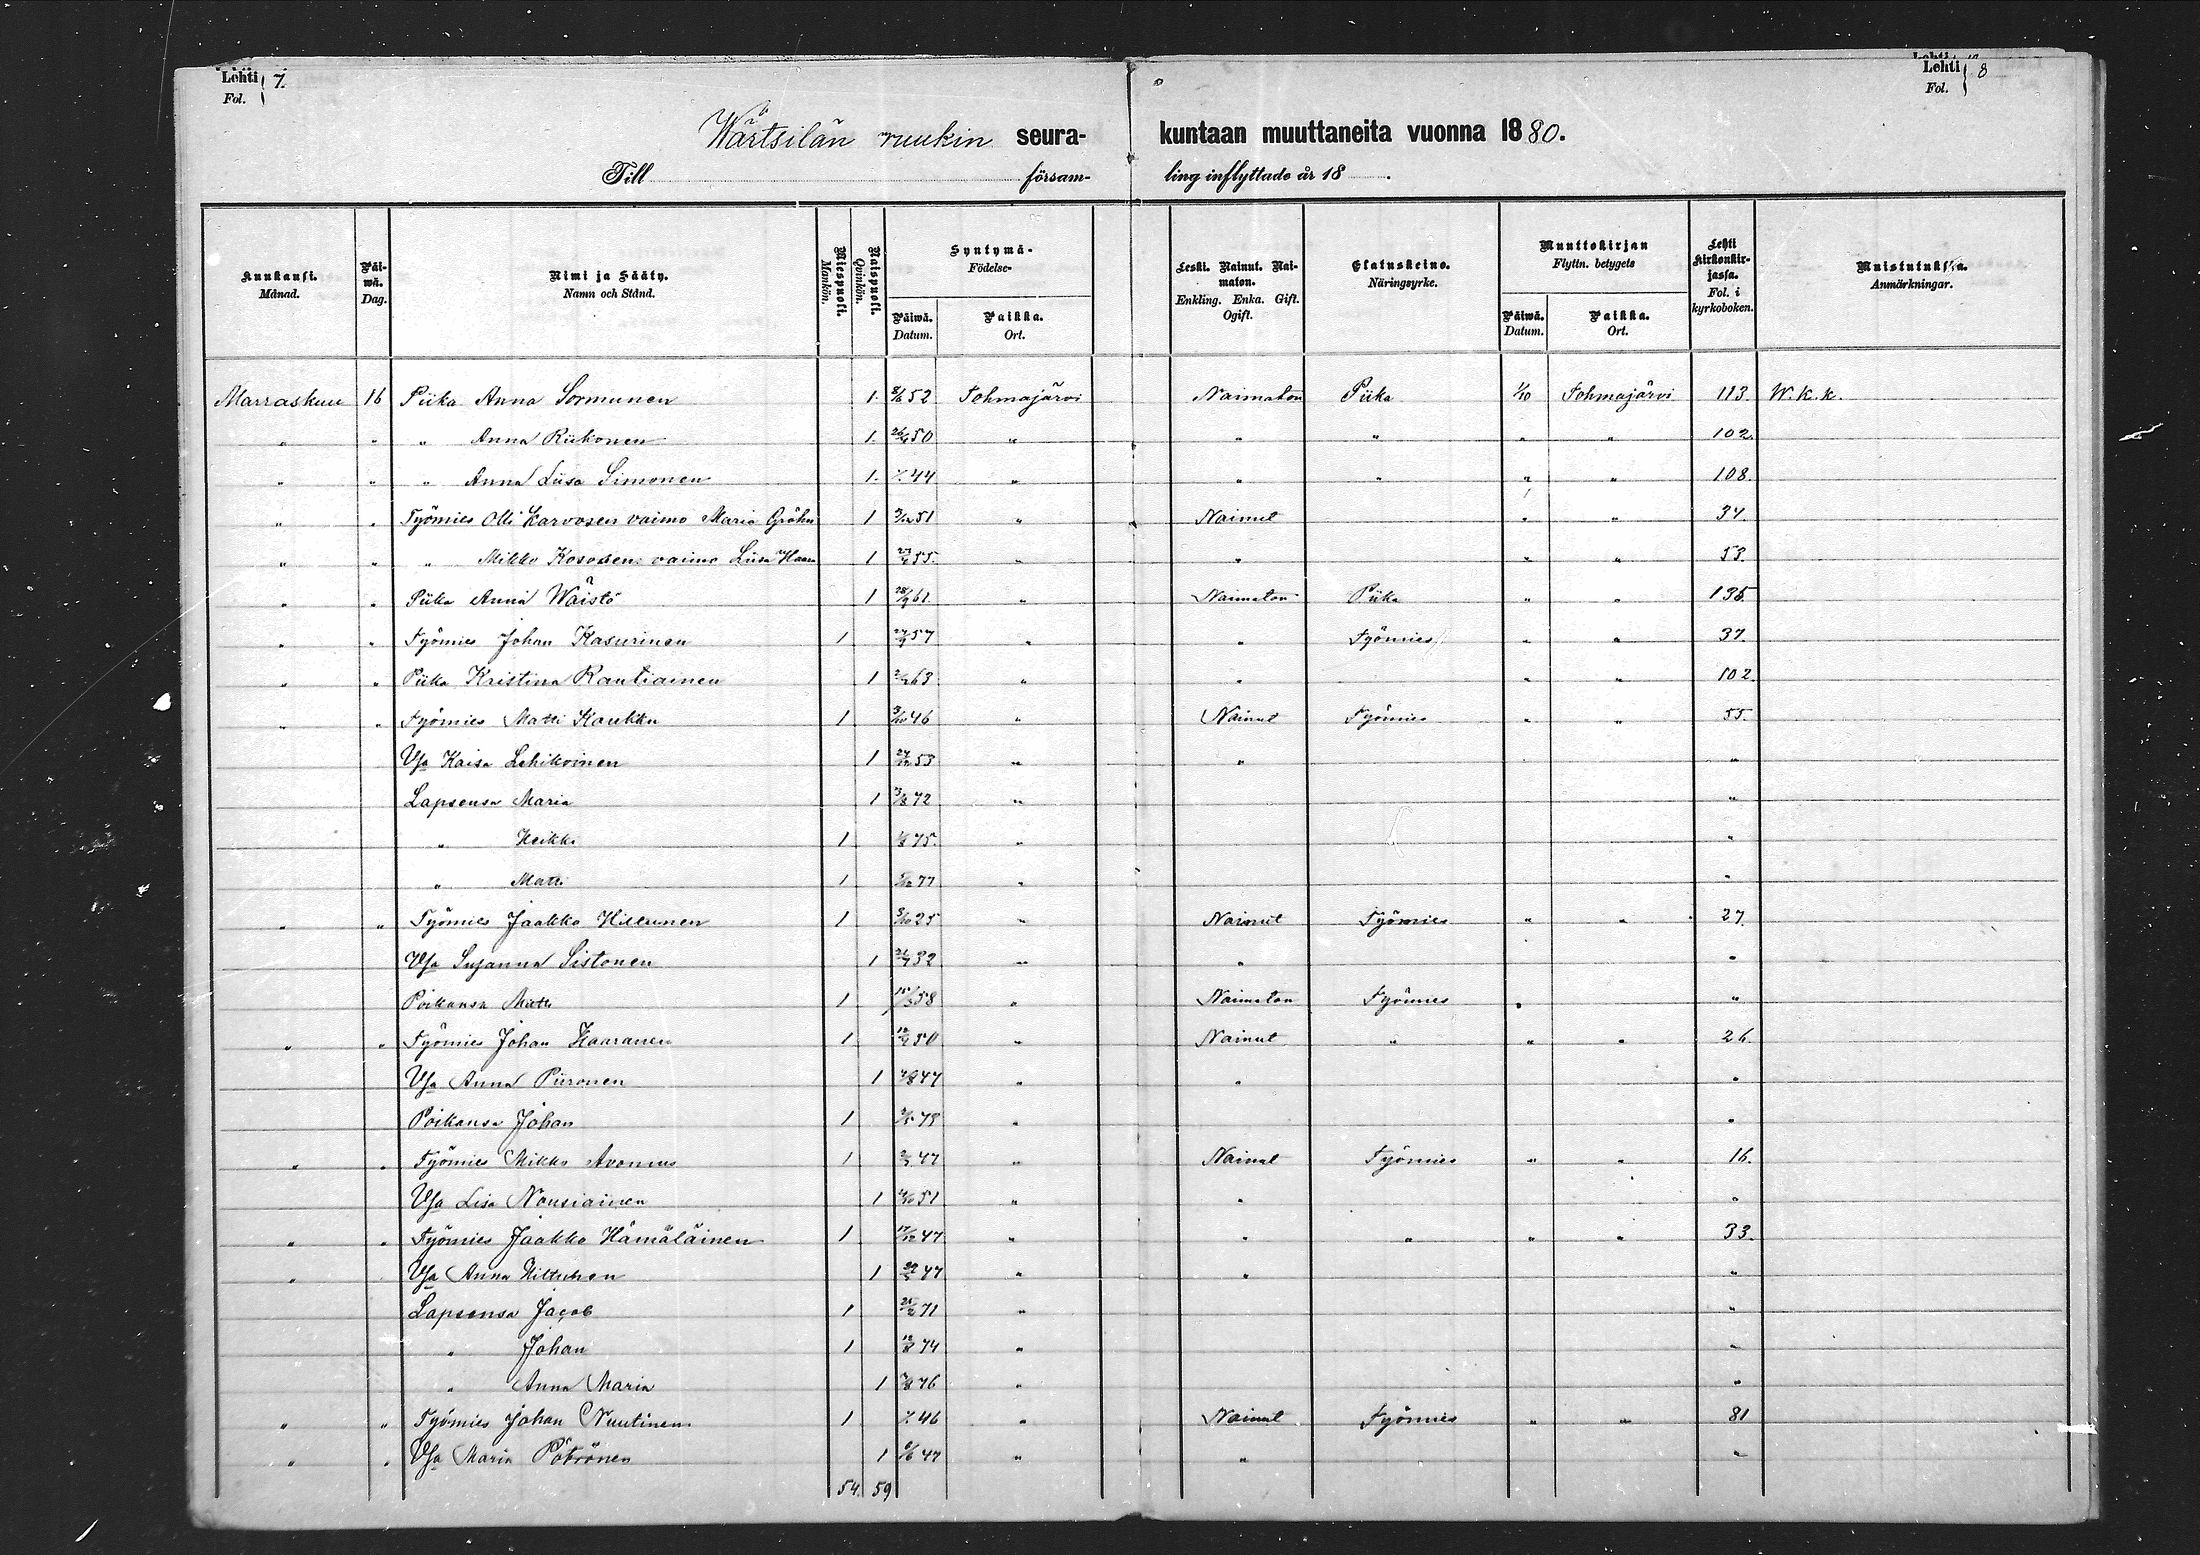 Lehti 7.
Fol.
Lehti 8
Fol.
Wärtsilän ruukin seura- kuntaan muuttaneita vuonna 1880.
Till försam- ling inflyttade år 18 .
Kuukausi. Månad. Päi-wä. Dag. Nimi ja Sääty. Namn och Stånd. Miespuoli. Mankön. Naispuoli. Qvinkön. Syntymä- Födelse- Päiwä. Datum. Paikka. Ort. Leski. Nainut. Nai-maton. Enkling. Enka. Gift. Ogift. Elatuskeino. Näringsyrke. Muuttokirjan Flyttn. betygets Päiwä. Datum. Paikka. Ort. Lehti kirkonkir-jassa. Fol. i kyrkoboken. Muistutuksia. Anmärkningar.
Marraskuu 16 Piika Anna Sormunen 1. 52 Tohmajärvi Naimaton Piika 1/10 Tohmajärvi 113. W.k.k.
" " " Anna Riikonen 1. 50 " " " " " 102.
" " " Anna Liisa Simonen 1. 44 " " " " " 108.
" " Työmies Olli Karvosen vaimo Maria Gröhn 1 51 " Nainut " " 34.
" " " Mikko Kososen vaimo Liisa 1 55. " " " " 53.
" " Piika Anna Wäistö 1 61. " Naimaton Piika " " 135.
" " Työmies Johan Kasurinen 1 57 " " Työmies " " 37.
" " Piika Kristina Rautiainen 1 63 " " " " 102.
" " Työmies Matti Kaukku 1 3/10 46 " Nainut Työmies " " 55.
Vsa Kaisa Lehikoinen 1 53 " " "
Lapsensa Maria 1 3/8 72 " "
" Heikki 1 75. " "
" Matti 1 77 " "
" " Työmies Jaakko Hiltunen 1 25 " Nainut Työmies " " 27.
Vsa Susanna Sistonen 1 32 " " "
Poikansa Matti 1 58 " Naimaton Työmies " "
" " Työmies Johan Haaranen 1 50 " Nainut " " " 26.
Vsa Anna Piironen 1 47 " " "
Poikansa Johan 1 " "
" " Työmies Mikko Avonius 1 47 " Nainut Työmies " " 16.
Vsa Lisa Nousiainen 1 51 " " "
" " Työmies Jaakko Hämäläinen 1 17/12 47 " " " " " 33.
" Vsa Anna Hiltunen 1 47 " " "
Lapsensa Jacob 1 71 " "
" Johan 1 74 " "
" Anna Maria 1 76 " "
" " Työmies Johan Nuutinen 1 46 " Nainut Työmies " " 81
" " Vsa Maria Pötrönen 1 47 " " "
54. 59